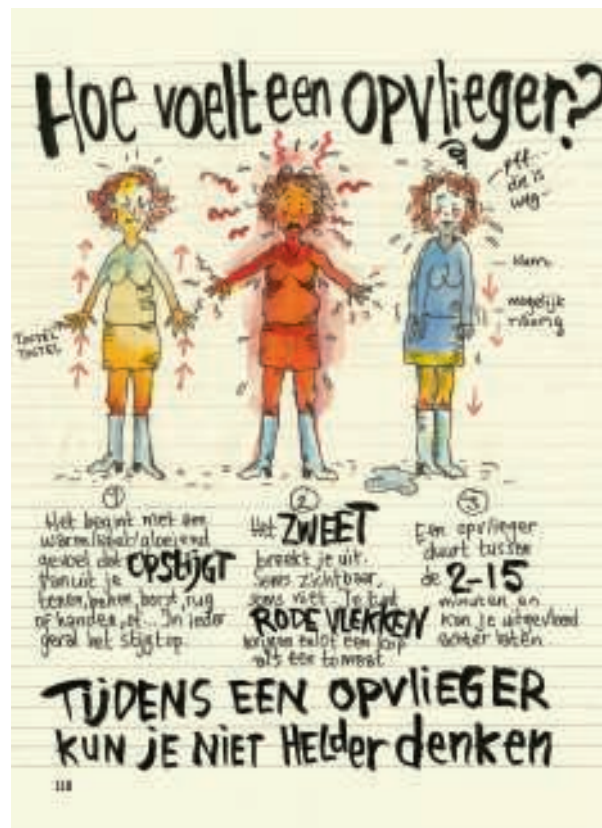 Hoe voelt een opvlieger?
pff...
die is
weg-
mogelijk
TINTEL
TINTEL
1
Het begint met een
gevoel dat OPSTIJGT
vanuit je
borst, rug
of handen, of... In ieder
geval het stijgt op.
2
Het ZWEET
breekt je uit.
Soms zichtbaar,
soms niet. Je kunt
RODE VLEKKEN
krijgen en/of een kop
als een tomaat.
3
Een opvlieger
duurt tussen
de 2-15
minuten en
kan je uitgevloerd
achter laten.
TIJDENS EEN OPVLIEGER
KUN JE NIET HELder denken
118